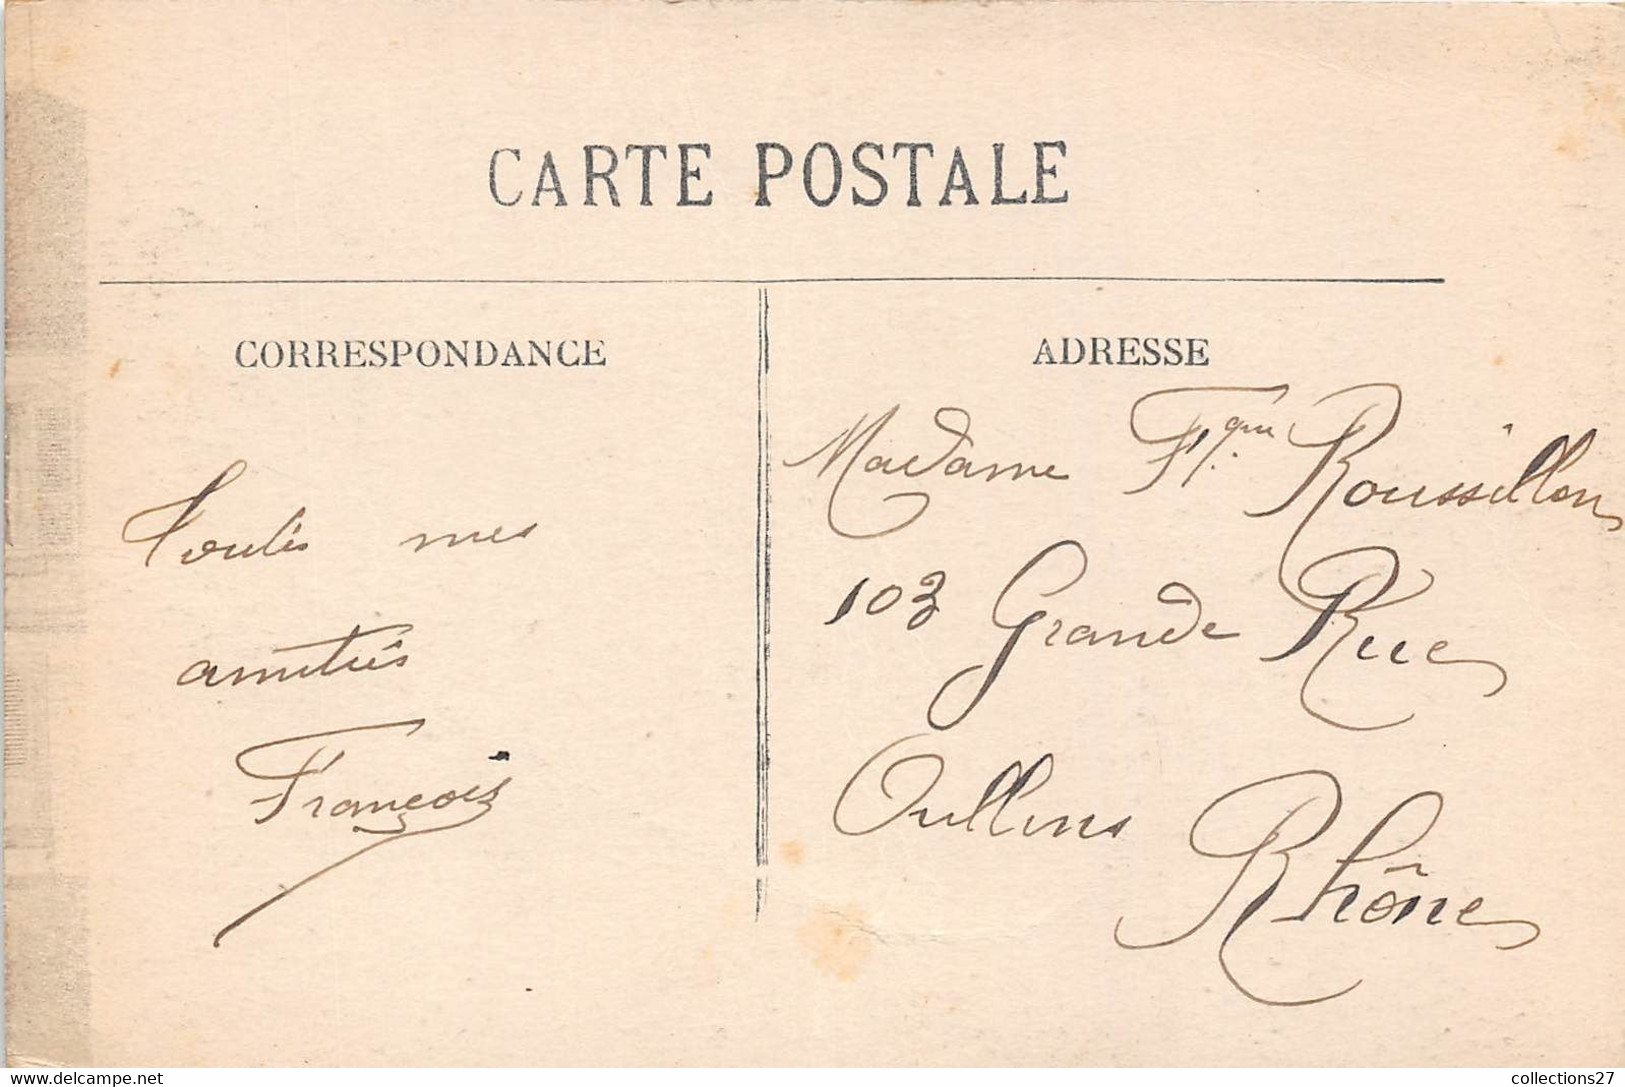 CARTE POSTALE
CORRESPONDANCE
Toutes mes
amitiés
François
ADRESSE
Madame Fçois Roussillon
103 Grande Rue
Oullins
Rhône
collections27